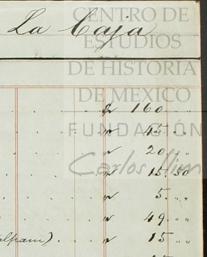 La Caja
CENTRO DE
ESTUDIOS
DE HISTORIA
DE MEXICO
FUNDACIÓN
Carlos Slim
$ 160 " "
" 45 " "
" 20 " "
" 15.50
" 5 " "
" 49 " "
" 15 " "